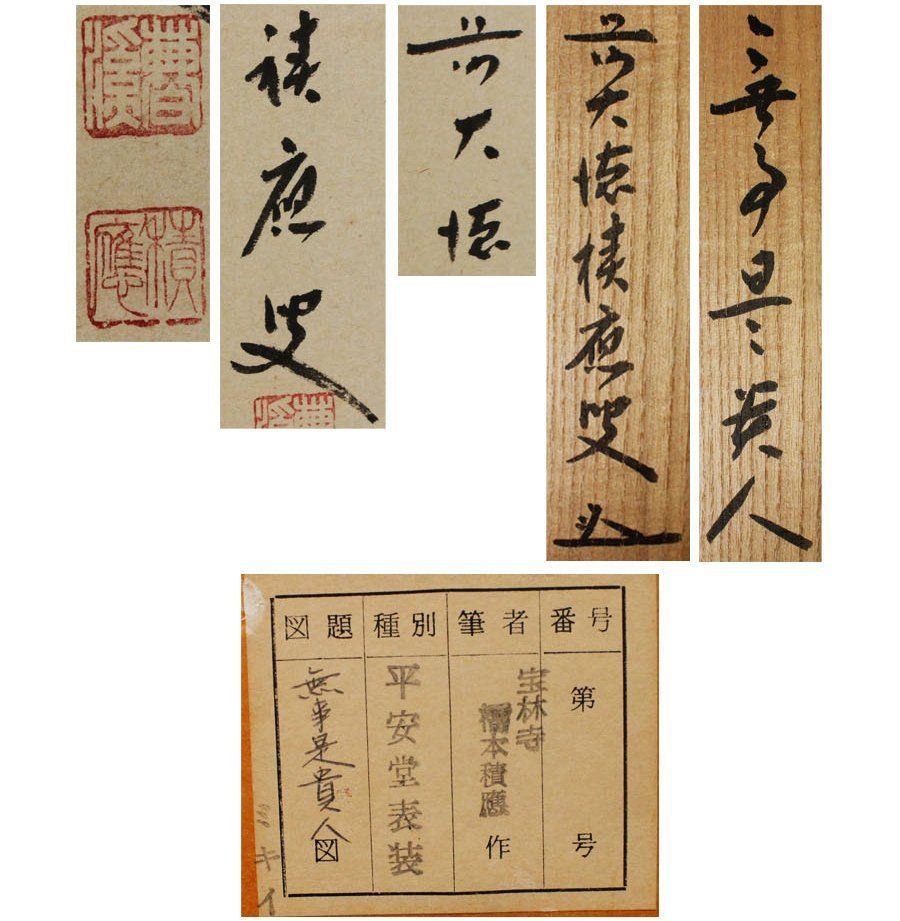 積應
積應叟
前大徳
前大徳積應叟
無事是貴人
番号
筆者
種別
図題
第 号
宝林寺
橋本積應
作
平安堂表装
無事是貴人図
キイ